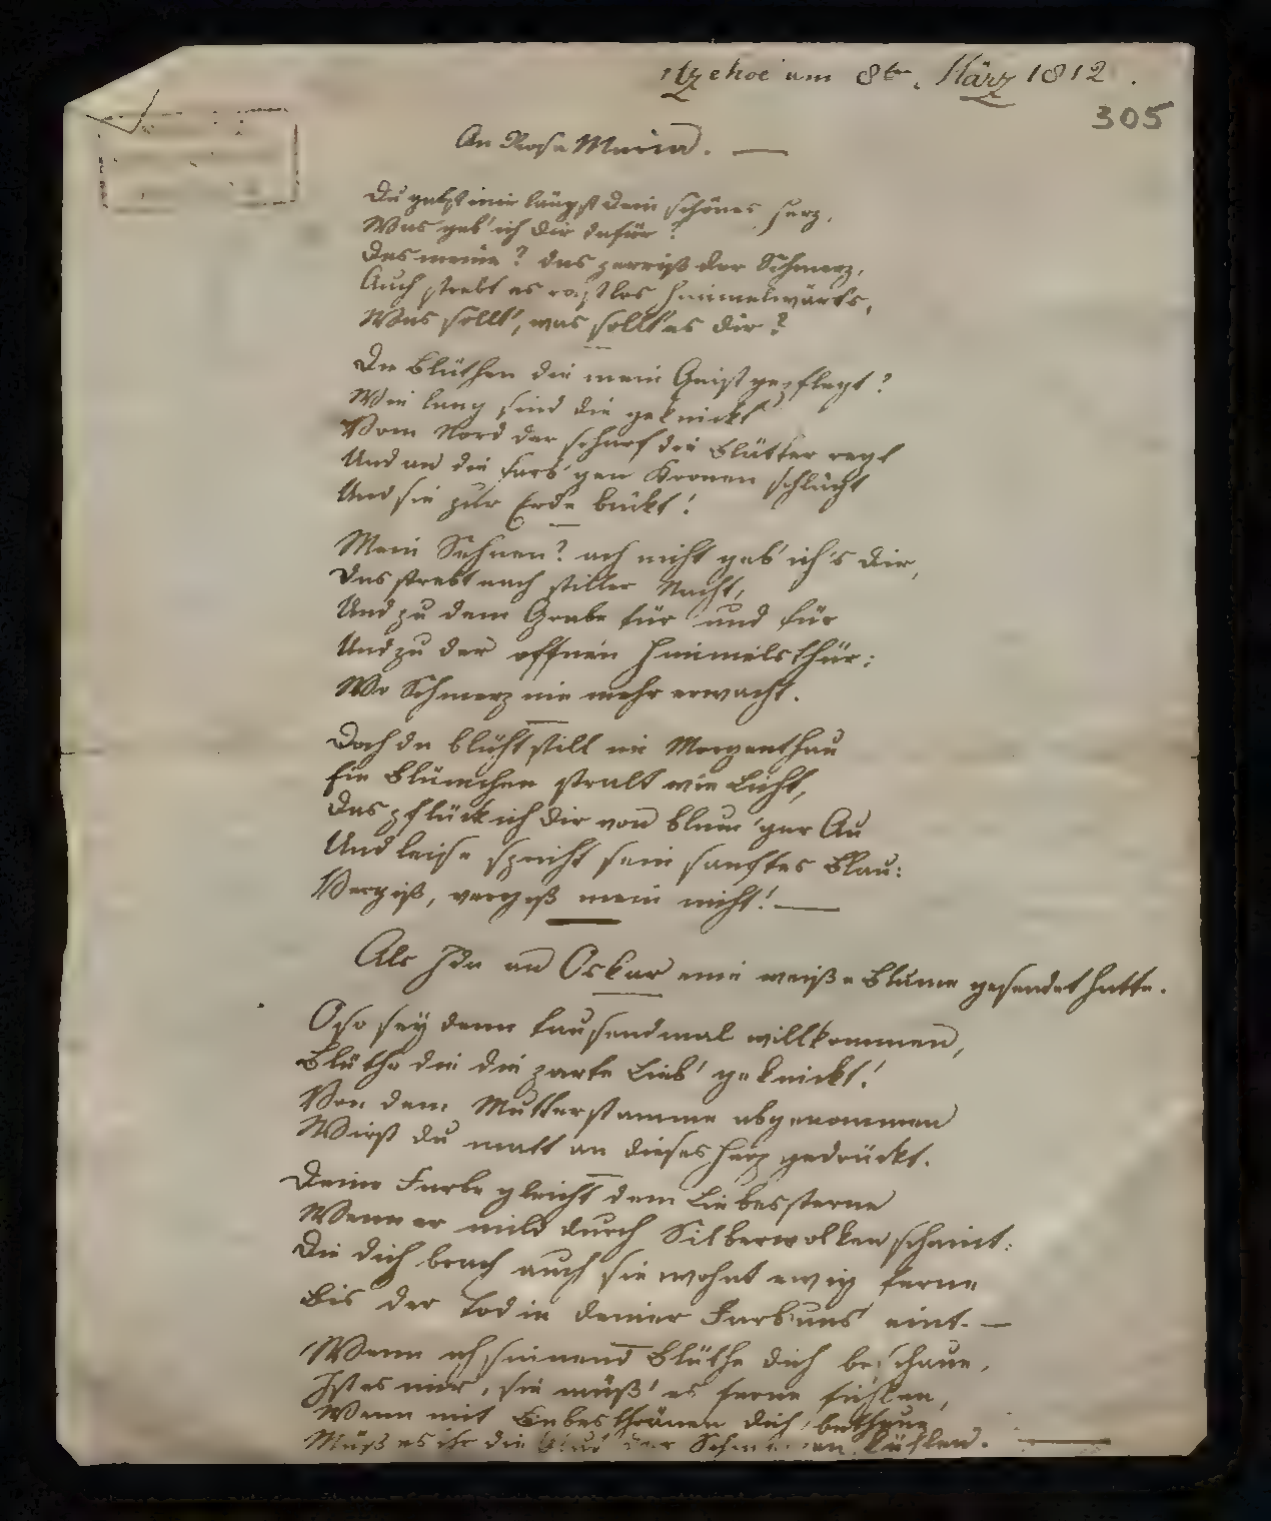 Itzehoe am 8ten März 1812.
305
An Rosa Maria. —
Du gabst mir längst dein schönes Herz,
Was geb' ich dir dafür?
Das meine? das zerriß der Schmerz,
Auch strebt es rastlos himmelwärts,
Was sollt', was sollt es dir?
Die Blüthen die mein Geist gepflegt?
Wie lang sind die geknickt
Vom Nord der scharf die Blätter regt
Und an die farb'gen Kronen schlägt
Und sie zur Erde bückt!
Mein Sehnen? ach nicht geb' ich's dir,
Das strebt nach stiller Nacht,
Und zu dem Grabe für und für
Und zu der offnen Himmelsthür:
Wo Schmerz nie mehr erwacht.
Doch da blüht still im Morgenthau
Ein Blümchen stralt wie Licht,
Das pflück ich dir von blum'ger Au
Und leise spricht sein sanftes Blau:
Vergiß, vergiß mein nicht! —
Als Ida an Oskar eine weiße Blume gesendet hatte.
O so sey denn tausendmal willkommen,
Blüthe die die zarte Lieb' geknickt!
Von dem Mutterstamme abgenommen
Wirst du matt an dieses Herz gedrückt.
Deine Farbe gleicht dem Liebessterne
Wenn er mild durch Silberwolken scheint:
Die dich brach auch sie wohnt ewig ferne
Bis der Tod in deiner Farb' uns eint. —
Wenn ich sinnend Blüthe dich beschaue,
Ist es mir, sie müß' es ferne fühlen,
Wenn mit Liebesthränen dich bethaue
Muß es ihr die der Schmerzen kühlen. —